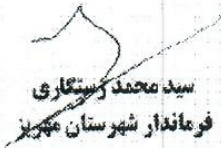 سید محمد رستگاری
فرماندار شهرستان مهریز